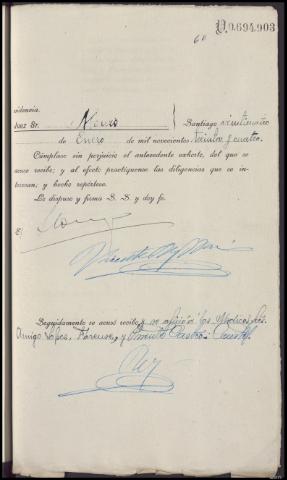 60
0.694.903
videncia.
Juez Sr. Alonso Santiago veinticuatro
de Enero de mil novecientos treinta y cuatro.
Cúmplase sin perjuicio el antecedente exhorto, del que se
acuse recibo; y al efecto practíquense las diligencias que se in-
teresan; y hecho repórtese.
Lo dispuso y firma S. S. y doy fe.
E/
Seguidamente se acusó recibo y se ofició a los Médicos Sres.
Amigo López, Forense, y Castro. Doy fe